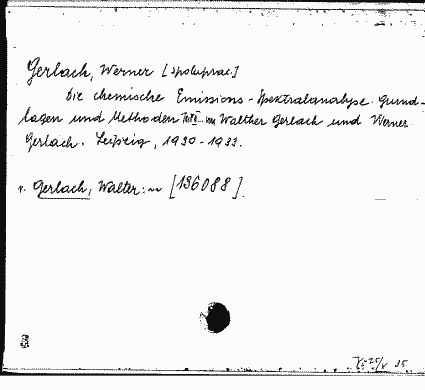 Gerlach, Werner [spoluprac.]
Die chemische Emissions-Spektralanalyse. Grund-
lagen und Methoden von Walther Gerlach und Werner
Gerlach. Leipzig, 1930-1933.
v. Gerlach, Walter: [136088].
35